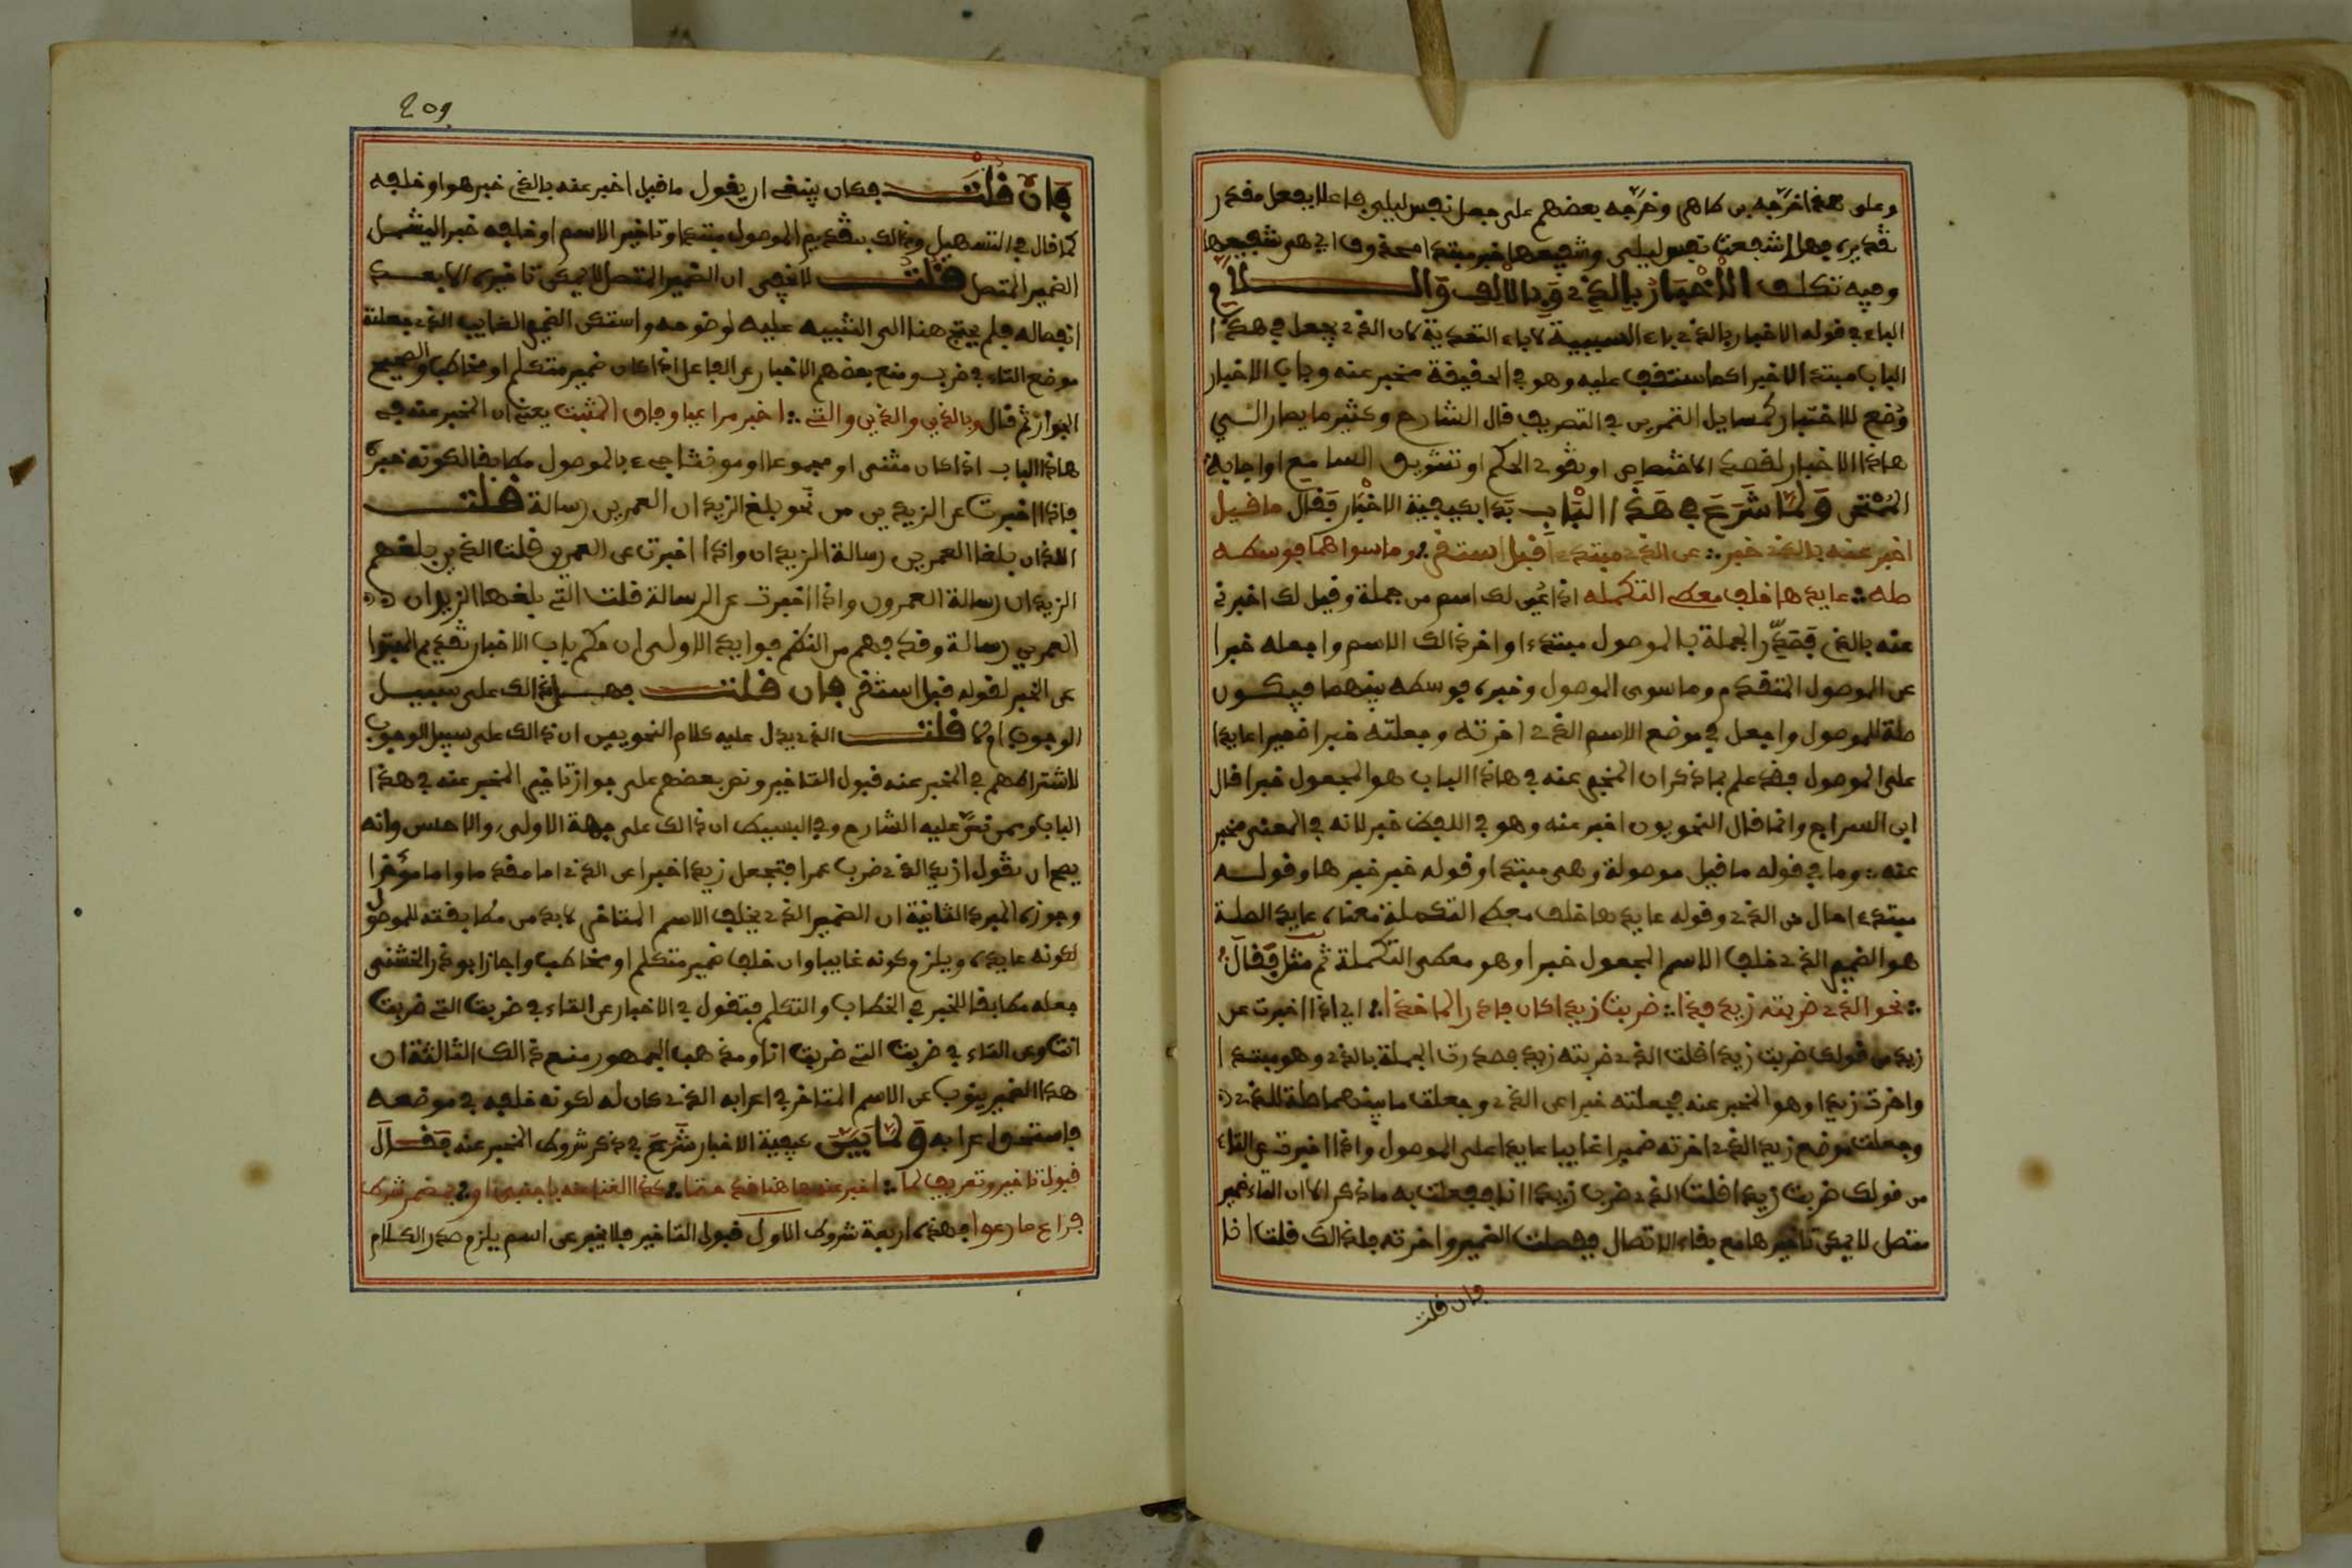 وعلى هذا خرّجه ابن طاهر وخرّجه بعضهم على جعل نفس ليلى فاعلا بفعل مقدر
تقديره فهلا شفعت نفس ليلى وشفيعها خبر مبتدا محذوف اي هي شفيعها
وفيه تكلف الاخبار بالذي وبالالف واللام
الباء في قوله الاخبار بالذي باء السببية لا باء التعدية لان الذي يجعل في هذا
الباب مبتدا لا خبرا كما ستقف عليه وهو في الحقيقة مخبر عنه وباب الاخبار
وُضع للاختبار كمسايل التمرين في التصريف قال الشارح وكثير ما يصار الى
هاذا الاخبار لقصد الاختصاص او تقوي الحكم او تشويق السامع او اجابة
الممتحن وَلمّا شَرَعَ في هَذا البَاب بَدا بكيفية الاخبار فقال ما قيل
اخبر عنه بالذي خبر ∴ عن الذي مبتدءا قبل استقر ∴ وما سواهما فوسطه
صله ∴ عايدها خلف معطى التكمله اذا عُيّن لك اسم من جملة وقيل لك اخبر
عنه بالذي فصدّر الجملة بالموصول مبتدءا واخر ذالك الاسم واجعله خبرا
عن الموصول المتقدم وما سوى الموصول وخبره فوسطه بينهما فيكون
صلة للموصول واجعل في موضع الاسم الذي اخرته وجعلته خبرا ضميرا عايدا
على الموصول فقد علم بما ذكر ان المخبر عنه في هاذا الباب هو المجعول خبرا قال
ابن السراج وانما قال النحويون اخبر عنه وهو في اللفظ خبر لانه في المعنى مخبر
عنه ∴ وما في قوله ما قيل موصولة وهي مبتدا وقوله خبر خبرها وقوله
مبتدءا حال من الذي وقوله عايدها خلف معطى التكملة معناه عايد الصلة
هو الضمير الذي خلف الاسم المجعول خبرا وهو معطى التكملة ثم مثل فقال
∴ نحو الذي ضربته زيد فذا ∴ ضربت زيدا كان فادر الماخذا ∴ اي اذا اخبرت عن
زيد من قولك ضربت زيدا قلت الذي ضربته زيد فصدرت الجملة بالذي وهو مبتدا
واخرت زيدا وهو المخبر عنه فجعلته خبرا عن الذي وجعلت ما بينهما صلة للذي
وجعلت موضع زيد الذي اخرته ضميرا غايبا عايدا على الموصول واذا اخبرت عن التاء
من قولك ضربت زيدا قلت الذي ضرب زيدا انا ففعلت به ما ذكر الا ان التاء ضمير
متصل لا يمكن تاخيرها مع بقاء الاتصال ففصلت الضمير واخرته فلذالك قلت انا
فان قلت
209
فان قلتَ فكان ينبغي ان يقول ما قيل اخبر عنه بالذي خبر هو او خلفه
كما قال في التسهيل وذالك بتقديم الموصول مبتدا وتاخير الاسم او خلفه خبرا ليشمل
الضمير المتصل قلت لا خفى ان الضمير المتصل لا يمكن تاخيره الا بعد
انفصاله فلم يحتج هنا الى التنبيه عليه لوضوحه واستكن الضمير الغايب الذي جعلته
موضع التاء في ضرب ومنع بعضهم الاخبار عن الفاعل اذا كان ضمير متكلم او مخاطب والصحيح
الجواز ثم قال وبالذين والذين والتي ∴ اخبر مراعيا وفاق المثبت يعني ان المخبر عنه في
هاذا الباب اذا كان مثنى او مجموعا او مونثا جيء بالموصول مطابقا لكونه خبره
فاذا اخبرت عن الزيدين من نحو بلغ الزيدان العمرين رسالة قلت
اللذان بلغا العمرين رسالة الزيدان واذا اخبرت عن العمرين قلت الذين بلغهم
الزيدان رسالة العمرون واذا اخبرت عن الرسالة قلت التي بلغها الزيدان
العمرين رسالة وقد فهم من النظم فوايد الاولى ان حكم باب الاخبار تقديم المبتدا
عن الخبر لقوله قبل استقر فان قلت فهل ذالك على سبيل
الوجوب او لا قلت الذي يدل عليه كلام النحويين ان ذالك على سبيل الوجوب
لاشتراطهم في المخبر عنه قبول التاخير ونص بعضهم على جواز تاخير المخبر عنه في هذا
الباب وممن نصّ عليه الشارح وفي البسيط ان ذالك على جهة الاولى والاحسن وانه
يصح ان تقول زيد الذي ضرب عمرا فتجعل زيدا خبرا عن الذي اما مقدما واما مؤخرا
وجوزه المبرد الثانية ان الضمير الذي يخلف الاسم المتاخر لا بد من مطابقته للموصول
لكونه عايده ويلزم كونه غايبا وان خلف ضمير متكلم او مخاطب واجاز ابو ذر الخشنى
جعله مطابقا للخبر في الخطاب والتكلم فتقول في الاخبار عن التاء في ضربت التي ضربت
انت وعن التاء في ضربت التي ضربت انا ومذهب الجمهور منع ذالك الثالثة ان
هذا الضمير ينوب عن الاسم المتاخر في اعرابه الذي كان له لكونه خلفه في موضعه
فاستحق اعرابه وَلمّا بَيّن كيفية الاخبار شَرَعَ في ذكر شروط المخبر عنه فقال
قبول تاخير وتعريف لما ∴ اخبر عنه هاهنا قد حتما ∴ كذا الغنا عنه باجنبي او ∴ بمضمر شرط
فراع ما رعوا فهذه اربعة شروط الاول قبول التاخير فلا يخبر عن اسم يلزم صدر الكلام